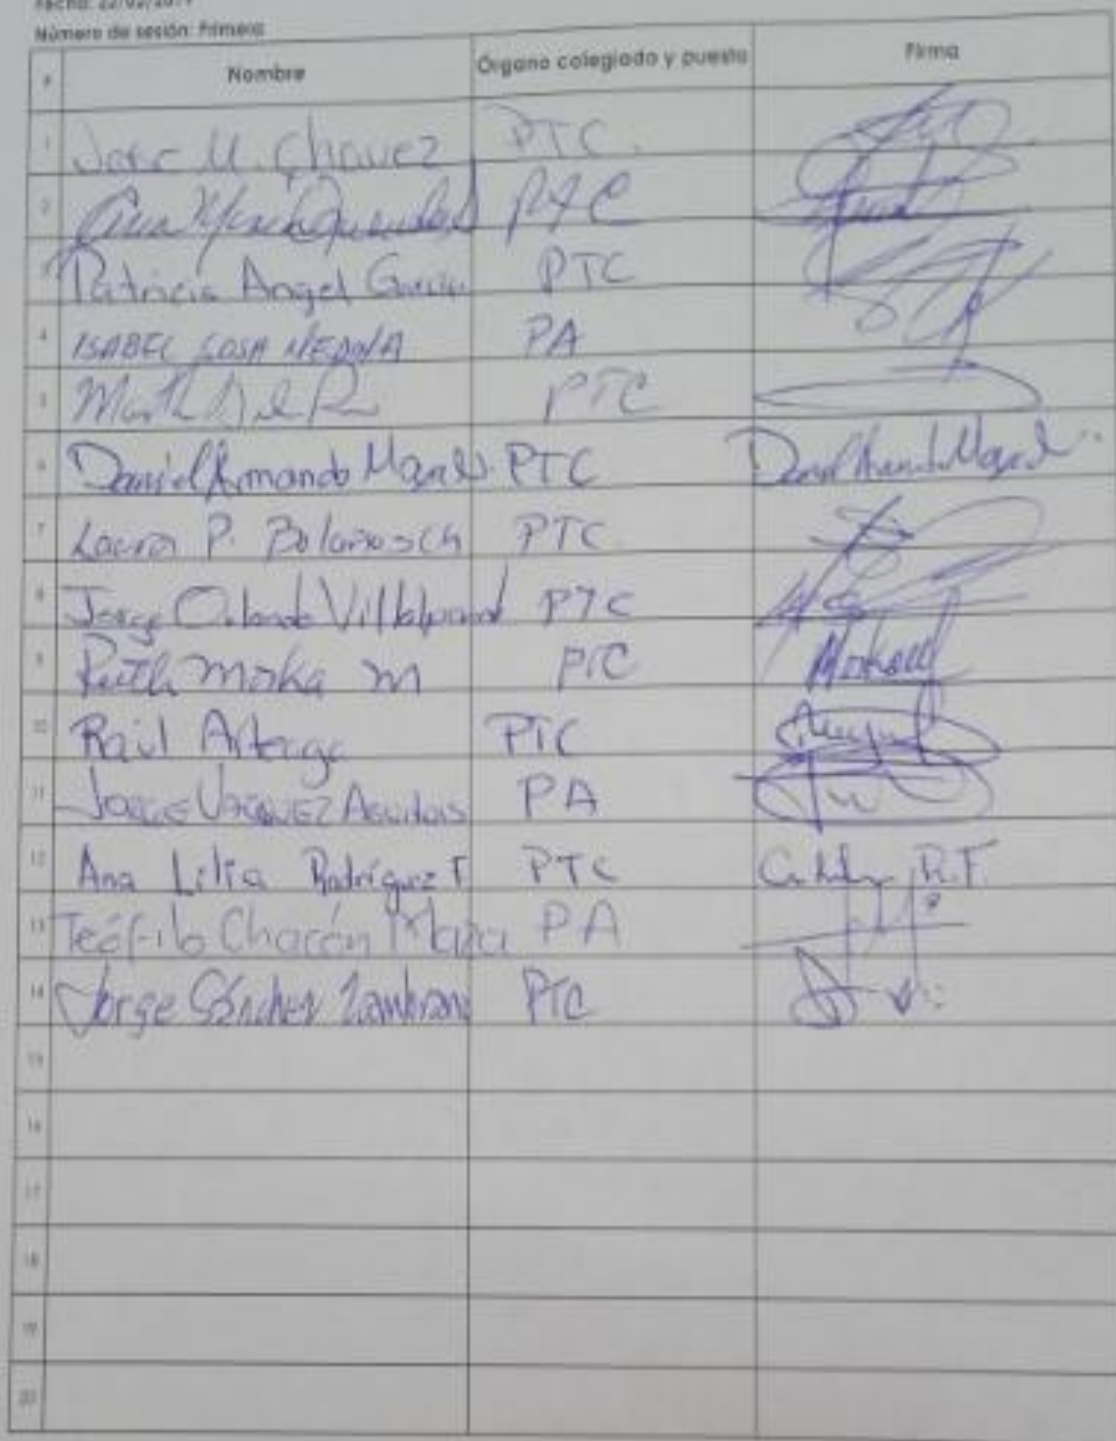 Fecha: 22/02/2019
Número de sesión: Primera
# Nombre Órgano colegiado y puesto Firma
1 Jose M. Chavez PTC.
2 Ana PTC
3 Patricia Angel Garcia PTC
4 ISABEL SOSA MEDINA PA
5 PTC
6 Daniel Armando PTC Daniel Armando
7 Laura P. Bolaños Ch PTC
8 Jorge Orlando Villalpando PTC
9 Ruth Moka M PTC
10 Raúl Arteaga PTC
11 JORGE VAZQUEZ PA
12 Ana Lilia Rodríguez F PTC R.F.
13 Teófilo Chacón Maza PA
14 Jorge Sánchez Zambrano PTC
15
16
17
18
19
20